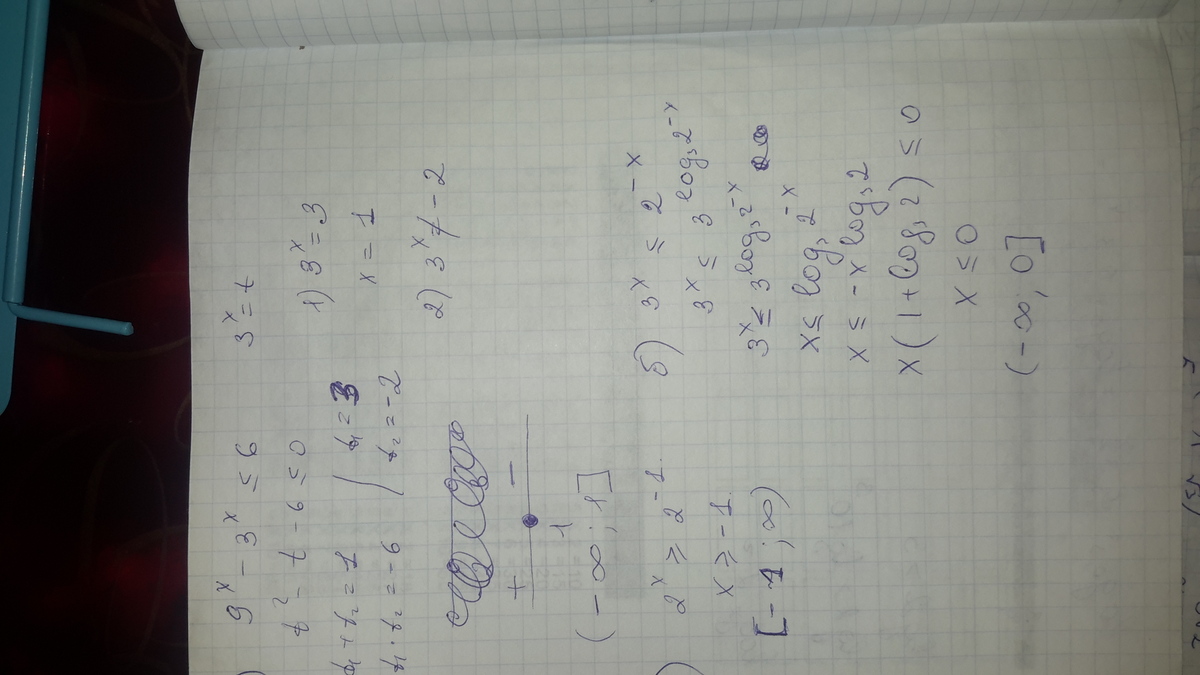 9^x - 3^x ≤ 6    3^x = t
t^2 - t - 6 ≤ 0
t₁ + t₂ = 1    t₁ = 3    1) 3^x = 3
t₁ · t₂ = -6    t₂ = -2    x = 1
2) 3^x ≠ -2
+ -
1
(-∞; 1]
2^x ≥ 2^-1
x ≥ -1
[-1; ∞)
б) 3^x ≤ 2^-x
3^x ≤ 3^log₃2^-x
3^x ≤ 3^log₃2^-x
x ≤ log₃2^-x
x ≤ -x log₃2
x(1 + log₃2) ≤ 0
x ≤ 0
(-∞; 0]